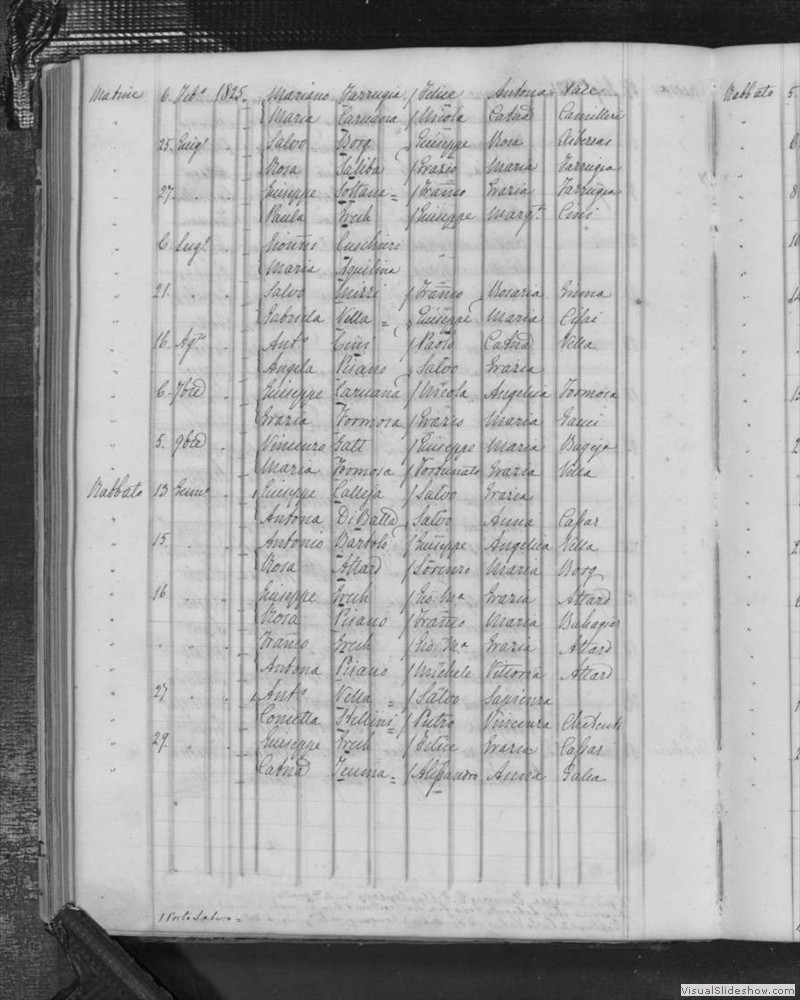 Matrice 6. Feb.º 1825. Mariano Farrugia / Felice Antona Pace
Maria Caruana / Nicola Catnd Camilleri
25. Giugº Salvo Borg / Giuseppe Rosa
Rosa Saliba / Grazio Maria Farrugia
27. Giuseppe Soltana / Franco Grazia Farrugia
Paula Grech / Giuseppe Margª Cini
6. Lugº Cuschieri
Maria Aquilina
21. Salvo Mizzi / Franco Rosaria Gmma
Gabriela Vella / Giuseppe Maria
16. Agº Antº Cini / Paolo Catnd Vella
Angela Pisano / Salvo Grazia
6. 7bre Giuseppe Caruana / Nicola Angelica Formosa
Grazia Formosa / Grazio Maria Gauci
5. 9bre Vincenzo Gatt / Giuseppe Maria Bugeja
Maria Formosa / Fortunato Grazia Vella
Rabbato 13 Gennº Giuseppe Calleja / Salvo Grazia
Antona Salvo Anna Cassar
15 Antonio Bartolo / Giuseppe Angelica Vella
Rosa Attard / Lorenzo Maria Borg
16 Giuseppe Grech / Gio: Mª Grazia Attard
Rosa Pisano / Franco Maria Buhagiar
Franco Grech / Gio: Mª Grazia Attard
Antona Pisano / Michele Vittoria Attard
27 Antº Vella / Salvo Sapienza
Concetta Stellini / Pietro Vincenza
29. Giuseppe Grech / Felice Grazia Cassar
Catnd / Alessandro Anna Galea
1 Porto Salvo
Rabbato 5.
VisualSlideshow.com